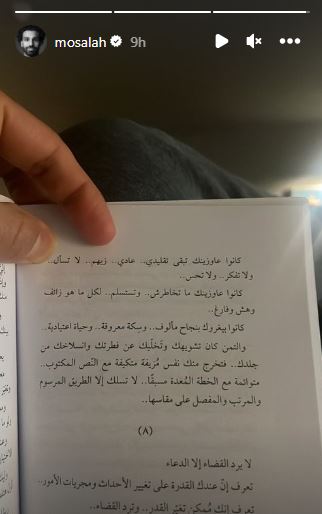 mosalah 9h
كانوا عاوزينك تبقى تقليدي.. عادي.. زيهم.. لا تسأل..
ولا تفكر.. ولا تحس..
كانوا عاوزينك ما تخاطرش.. وتستسلم.. لكل ما هو زائف
وهش وفارغ..
كانوا بيغروك بنجاح مألوف.. وسكة معروفة.. وحياة اعتيادية..
والتمن كان تشويهك وتخليك عن فطرتك وانسلاخك من
جلدك.. فتخرج منك نفس مُزيفة متكيفة مع النص المكتوب..
متوائمة مع الخطة المُعدة مسبقًا.. لا تسلك إلا الطريق المرسوم
والمرتب والمفصل على مقاسها..
(٨)
لا يرد القضاء إلا الدعاء
تعرف إنّ عندك القدرة على تغيير الأحداث ومجريات الأمور..
تعرف إنك مُمكن تغير القدر.. وترد القضاء..